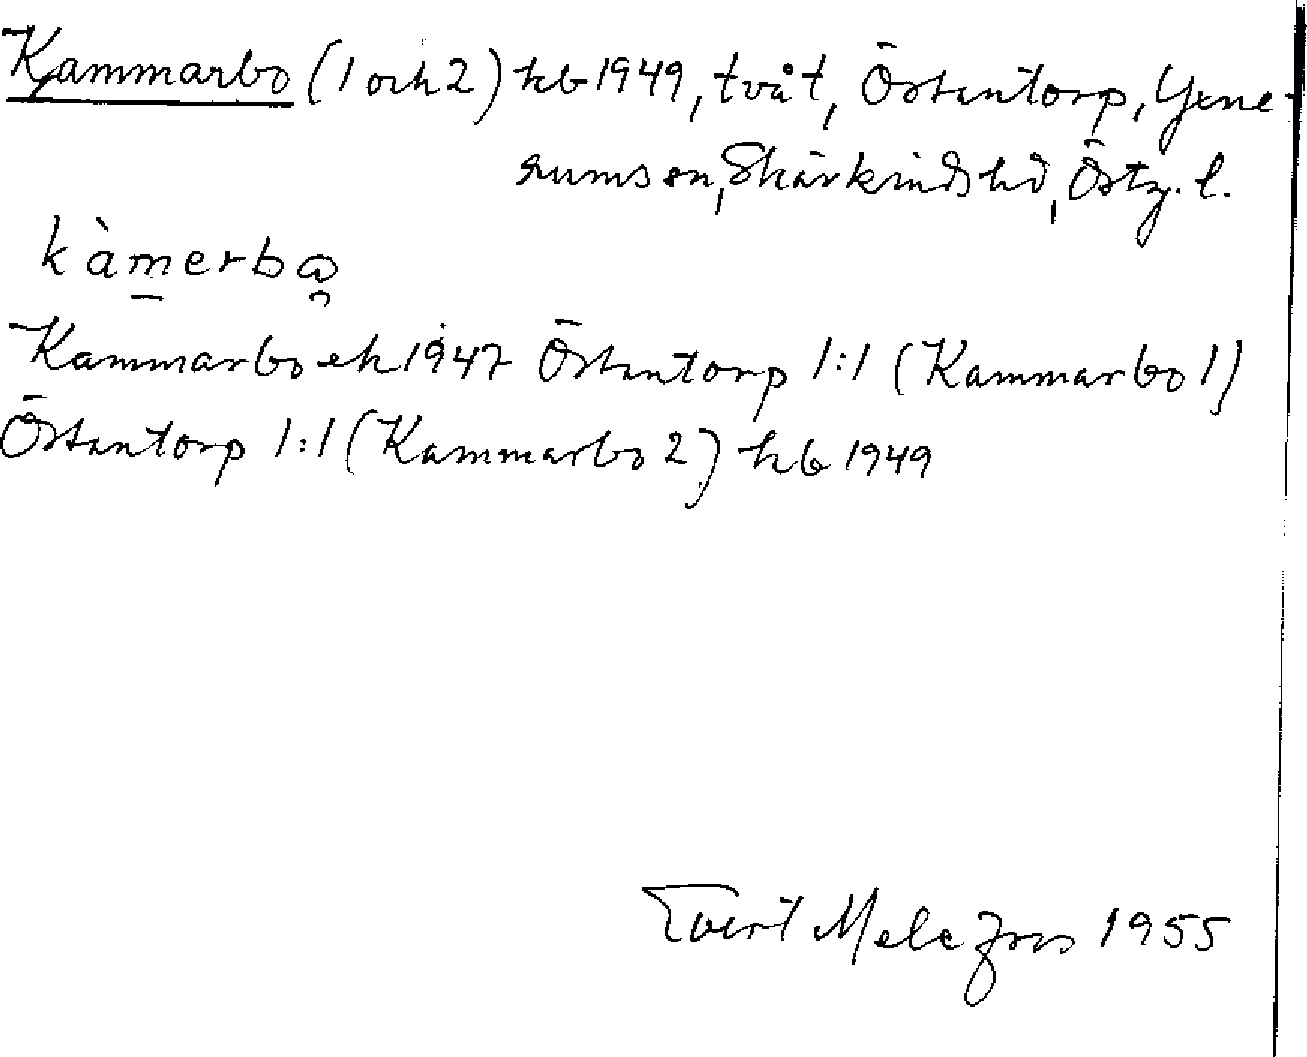 Kammarbo (1 och 2) hb 1949, två t, Östantorp, Yxne-
rums sn, Skärkinds hd, Östg. l.
kàmerbo
Kammarbo ek 1947 Östantorp 1:1 (Kammarbo 1)
Östantorp 1:1 (Kammarbo 2) hb 1949
Evert Melefors 1955